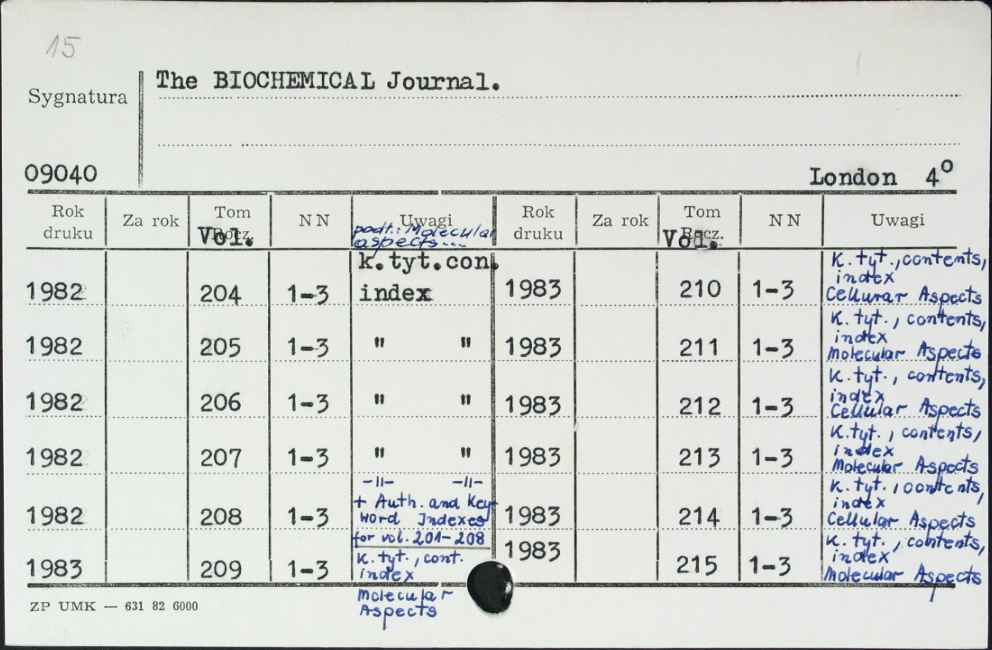 15
Sygnatura
The BIOCHEMICAL Journal.
09040
London 4°
Rok druku Za rok Tom Rocz. Vol. NN Uwagi Rok druku Za rok Tom Rocz. Vol. NN Uwagi
podt.: Molecular
aspects...
1982 204 1-3 k.tyt.con. index
1982 205 1-3 " "
1982 206 1-3 " "
1982 207 1-3 " "
1982 208 1-3 -||- -||-
+ Auth. and Key
Word Indexes
for vol. 201-208
1983 209 1-3 k. tyt., cont.
index
Molecular
Aspects
1983 210 1-3 K. tyt., contents,
index
Cellurar Aspects
1983 211 1-3 K. tyt., contents,
index
Molecular Aspects
1983 212 1-3 K. tyt., contents,
index
Cellular Aspects
1983 213 1-3 K. tyt., contents,
index
Molecular Aspects
1983 214 1-3 K. tyt., contents,
index
Cellular Aspects
1983 215 1-3 K. tyt., contents,
index
Molecular Aspects
ZP UMK — 631 82 6000